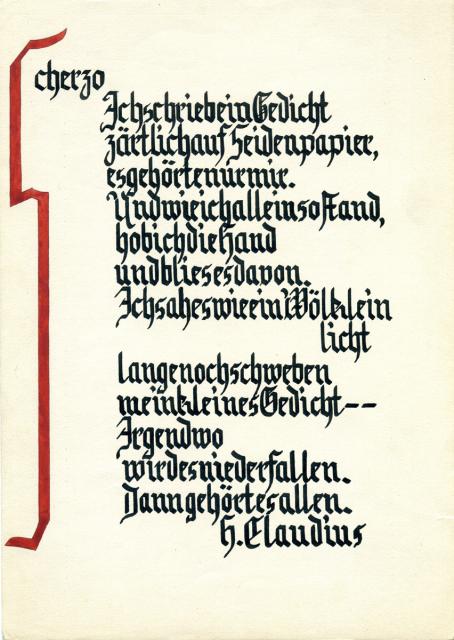 Scherzo
Ich schrieb ein Gedicht
zärtlich auf Seidenpapier,
es gehörte nur mir.
Und wie ich allein so stand,
hob ich die Hand
und blies es davon.
Ich sah es wie ein Wölklein
licht
lange noch schweben
mein kleines Gedicht--
Irgendwo
wird es niederfallen.
Dann gehört es allen.
H. Claudius